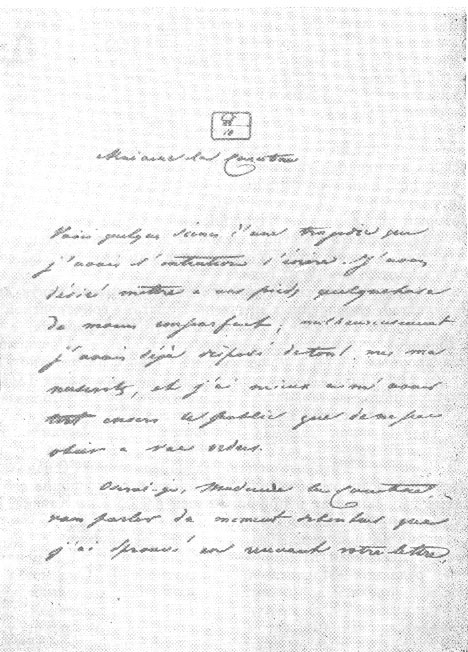 Madame la Comtesse
Voici quelques scènes d'une tragédie que
j'avais l'intention d'écrire. J'avais
désiré mettre à vos pieds quelque chose
de moins imparfait; malheureusement
j'avais déjà disposé de tous mes ma
nuscrits, et j'ai mieux aimé avoir
tort envers le public que de ne pas
obéir à vos ordres.
Oserai-je, Madame la Comtesse,
vous parler du moment de bonheur que
j'ai éprouvé en recevant votre lettre,